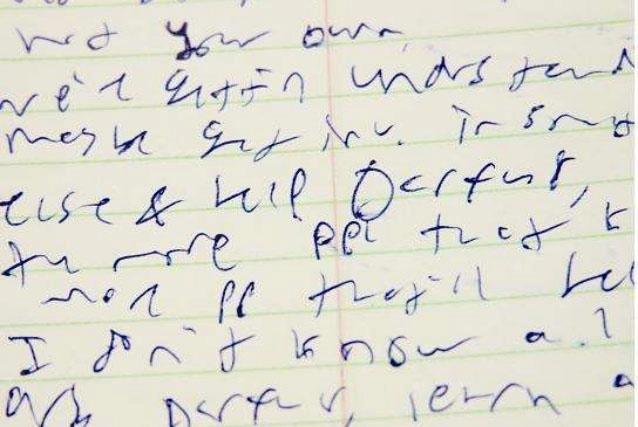 not your own
gettin understand
maybe get inv. in
else & help Darfur,
the more ppl that k
more pp that'll hel
I don't know a
Darfur, learn a